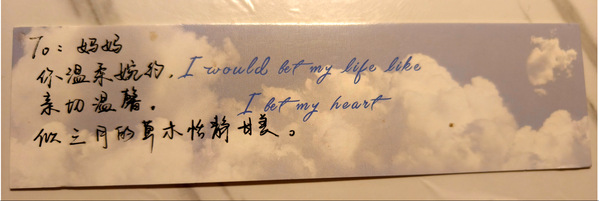 To：妈妈
你温柔婉约，
亲切温馨。
似三月的草木恬静甘美。
I would bet my life like
I bet my heart